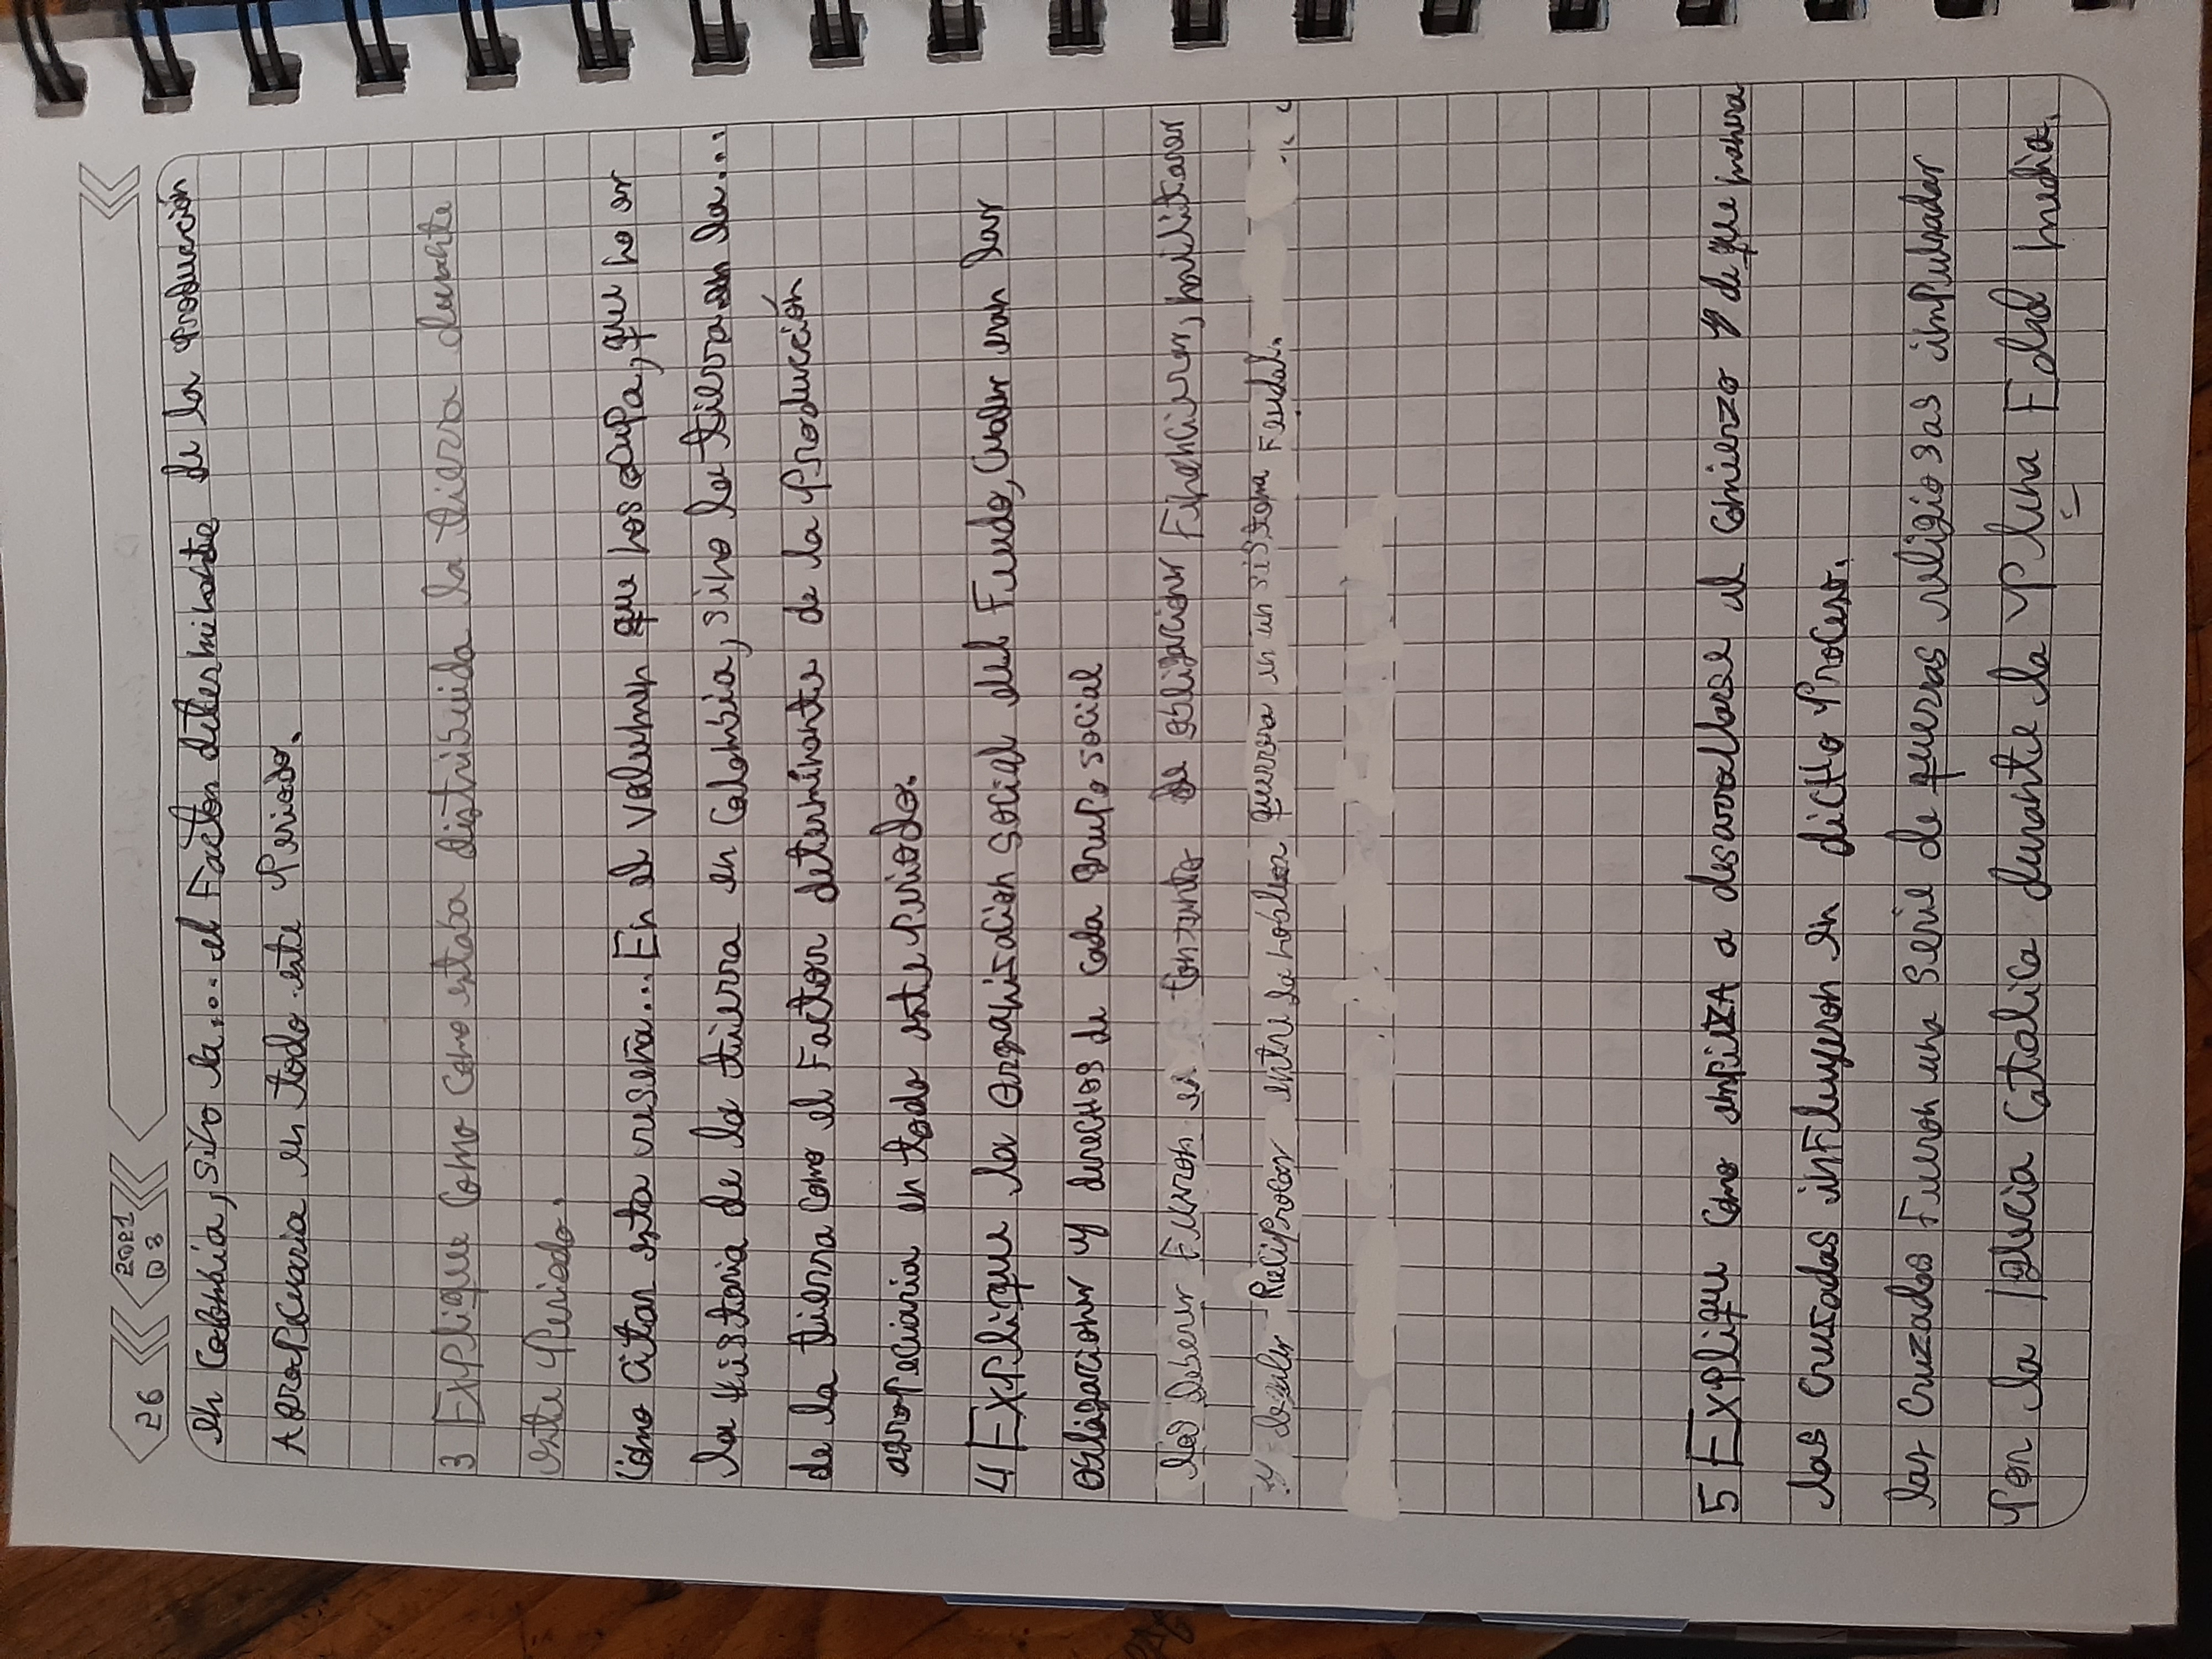 26
2021
03
en Colombia, sino la.... el Factor determinante de la producción
Agropecuaria en todo este Periodo.
3 Explique Como Como estaba distribuida la tierra durante
este Periodo.
Cómo citar esta reseña.... En el volumen que nos ocupa, que no es
la Historia de la tierra en Colombia, sino la tierra en la...
de la tierra como el Factor determinante de la Producción
agropeciaria en todo este periodo.
4 Explique la organización social del Feudo, Cuales eran las
obligaciones y derechos de cada Grupo social
los deberes Fueron un conjunto de obligaciones Financieras, militares
y legales Reciprocas entre la nobleza guerrera en un sistema Feudal.
5 Explique Como empieza a desarrollarse el Comienzo y de que manera
las Cruzadas influyeron en dicho Proceso.
las cruzadas Fueron una Serie de guerras religiosas impulsadas
Por la Iglecia Catolica durante la Plena Edad media.